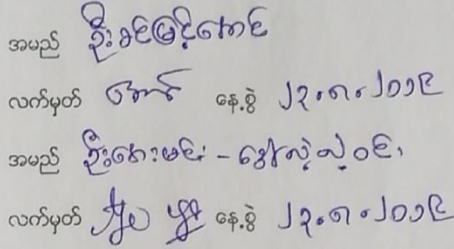 အမည် ဦးခင်မြင့်အောင်
လက်မှတ် နေ့စွဲ ၂၃.၈.၂၀၁၉
အမည် ဦးအေးမင်း - ဒေါ်လှဲ့လဲ့ဝင်း
လက်မှတ် နေ့စွဲ ၂၃.၈.၂၀၁၉